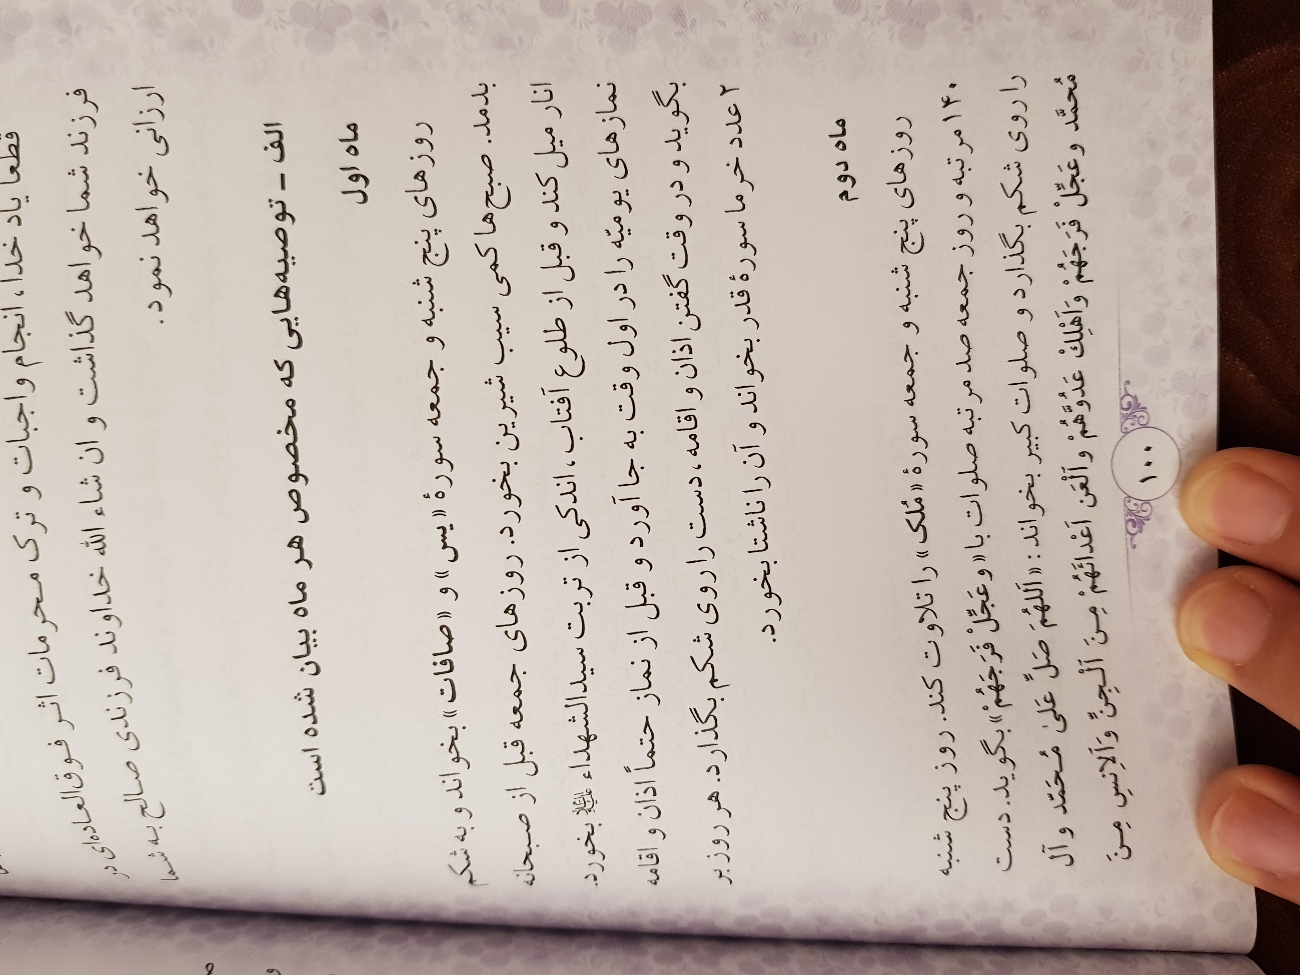 قطعا یاد خدا، انجام واجبات و ترک محرمات اثر فوق‌العاده‌ای در
فرزند شما خواهد گذاشت و ان شاء الله خداوند فرزندی صالح به شما
ارزانی خواهد نمود.
الف – توصیه‌هایی که مخصوص هر ماه بیان شده است
ماه اول
روزهای پنج شنبه و جمعه سورهٔ «یس» و «صافات» بخواند و به شکم
بدمد. صبح‌ها کمی سیب شیرین بخورد. روزهای جمعه قبل از صبحانه
انار میل کند و قبل از طلوع آفتاب، اندکی از تربت سیدالشهداء علیه‌السلام بخورد.
نمازهای یومیّه را در اول وقت به جا آورد و قبل از نماز حتماً اذان و اقامه
بگوید و در وقت گفتن اذان و اقامه، دست را روی شکم بگذارد. هر روز بر
۲ عدد خرما سورهٔ قدر بخواند و آن را ناشتا بخورد.
ماه دوم
روزهای پنج شنبه و جمعه سورهٔ «مُلک» را تلاوت کند. روز پنج شنبه
۱۴۰ مرتبه و روز جمعه صد مرتبه صلوات با «وعَجِّلْ فَرَجَهُمْ» بگوید. دست
را روی شکم بگذارد و صلوات کبیر بخواند: «اَللهُمَ صَلِّ عَلیٰ مُحَمَّد و آل
مُحمَّد وعَجِّلْ فَرَجَهُمْ وَاَهْلِکْ عَدُوَّهُمْ وَالْعَن اَعْدائَهُمْ مِنَ الْجِنِّ وَالاِنسِ مِنَ
۱۰۰